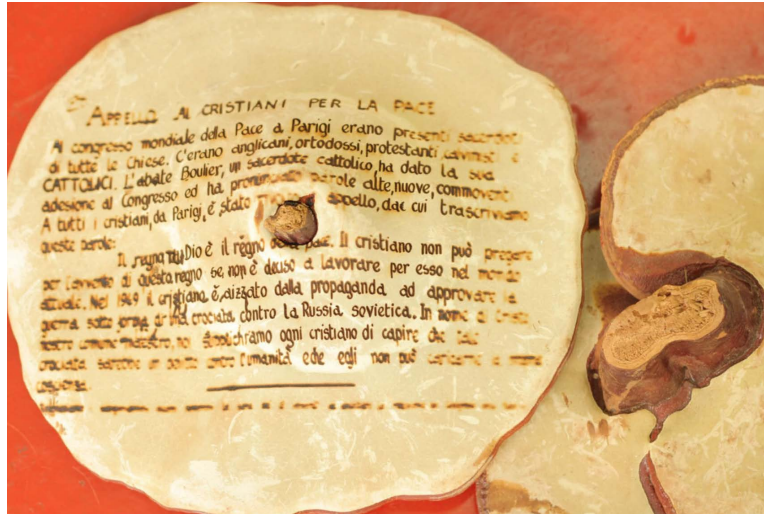 APPELLO AI CRISTIANI PER LA PACE
Al congresso mondiale della Pace a Parigi erano presenti sacerdoti
di tutte le Chiese. C'erano anglicani, ortodossi, protestanti calvinisti e
CATTOLICI. L'abate Boulier, un sacerdote cattolico, ha dato la sua
adesione al Congresso ed ha pronunciato parole alte, nuove, commoventi.
A tutti i cristiani, da Parigi, è stato appello, dal cui trascriviamo
queste parole:
Il regno Dio è il regno della pace. Il cristiano non può pregare
per l'avvento di questo regno se non è deciso a lavorare per esso nel mondo
attuale. Nel 1949 il cristiano è aizzato dalla propaganda ad approvare la
guerra sotto forma di crociata contro la Russia sovietica. In nome di Cristo
nostro comune maestro, noi ogni cristiano di capire che tale
crociata sarebbe un contro l'umanità e che egli non può